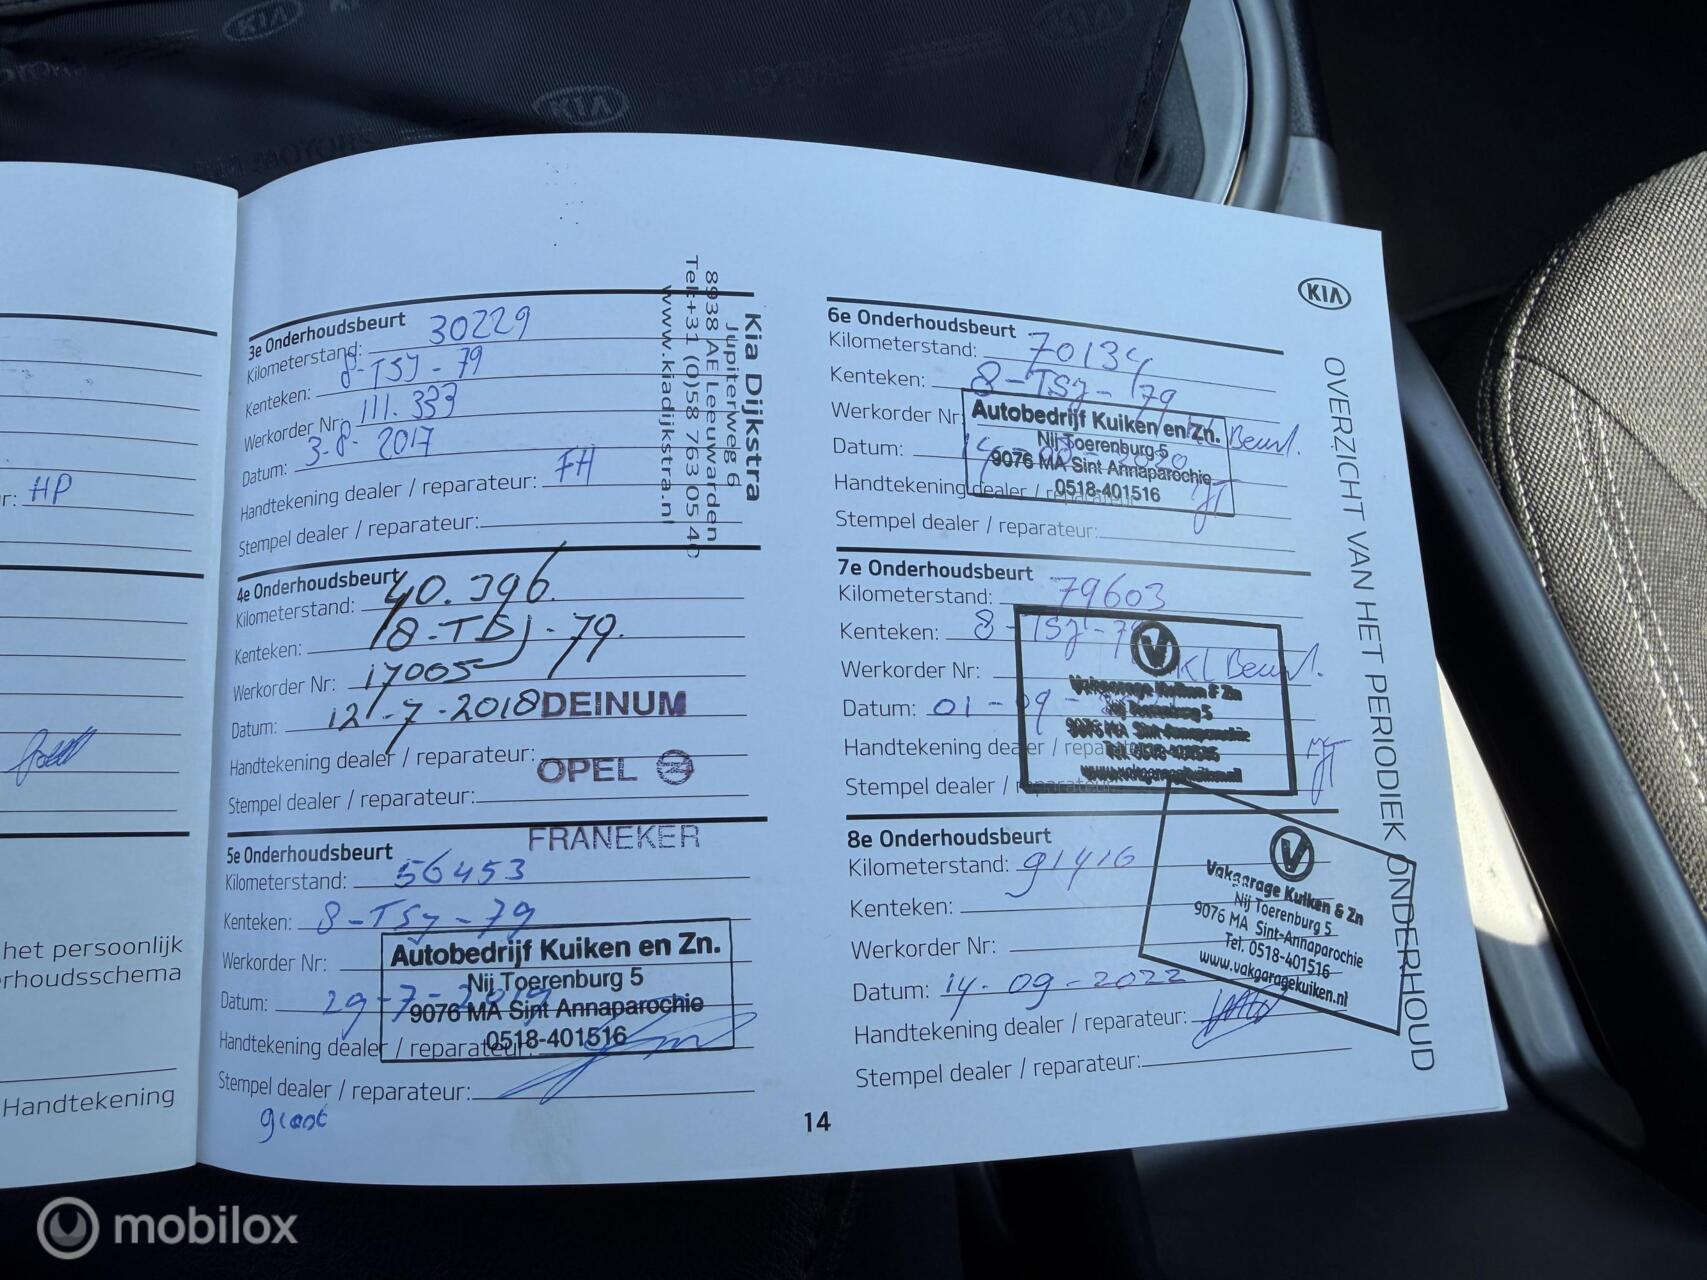 KIA
KIA
r: HP
het persoonlijk
rhoudsschema
Handtekening
3e Onderhoudsbeurt
Kilometerstand: 30229
Kenteken: 8-TSJ-79
Werkorder Nr: 111.333
Datum: 3-8-2017
Handtekening dealer / reparateur: FH
Stempel dealer / reparateur:
Kia Dijkstra
Jupiterweg 6
8938 AE Leeuwarden
Tel:+31 (0)58 763 05 40
www.kiadijkstra.nl
4e Onderhoudsbeurt
Kilometerstand: 40.396.
Kenteken: 8-TSJ-79.
Werkorder Nr: 17005
Datum: 12-7-2018
Handtekening dealer / reparateur:
Stempel dealer / reparateur:
DEINUM
OPEL
FRANEKER
5e Onderhoudsbeurt
Kilometerstand: 56453
Kenteken: 8-TSJ-79
Werkorder Nr:
Datum: 29-7-2019
Handtekening dealer / reparateur:
Stempel dealer / reparateur:
Autobedrijf Kuiken en Zn.
Nij Toerenburg 5
9076 MA Sint Annaparochie
0518-401516
groot
14
6e Onderhoudsbeurt
Kilometerstand: 70134
Kenteken: 8-TSJ-79
Werkorder Nr Beurt.
Datum: 2020
Handtekening dealer /
Stempel dealer / reparateur:
Autobedrijf Kuiken en Zn.
Nij Toerenburg 5
9076 MA Sint Annaparochie
0518-401516
7e Onderhoudsbeurt
Kilometerstand: 79603
Kenteken: 8-TSJ-79
Werkorder Nr: KL Beurt.
Datum: 01-09-
Handtekening dealer / reparateur:
Stempel dealer / reparateur:
V
Vakgarage Kuiken & Zn
Nij Toerenburg 5
9076 MA Sint-Annaparochie
Tel. 0518-401516
www.vakgaragekuiken.nl
8e Onderhoudsbeurt
Kilometerstand: 91416
Kenteken:
Werkorder Nr:
Datum: 14-09-2022
Handtekening dealer / reparateur:
Stempel dealer / reparateur:
V
Vakgarage Kuiken & Zn
Nij Toerenburg 5
9076 MA Sint-Annaparochie
Tel. 0518-401516
www.vakgaragekuiken.nl
KIA
OVERZICHT VAN HET PERIODIEK ONDERHOUD
mobilox